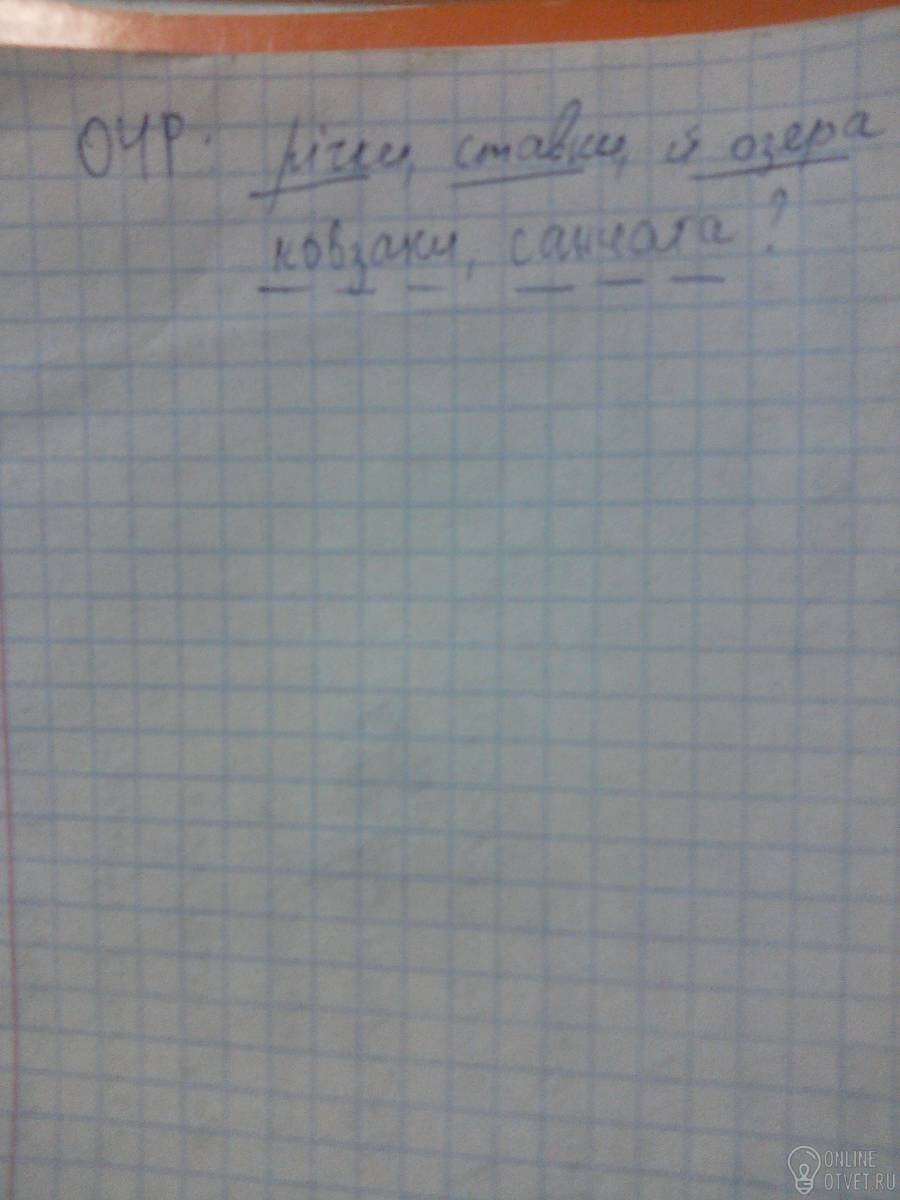 ОЧР: річки, ставки, й озера
ковзани, санчата?
ONLINE
OTVET.RU